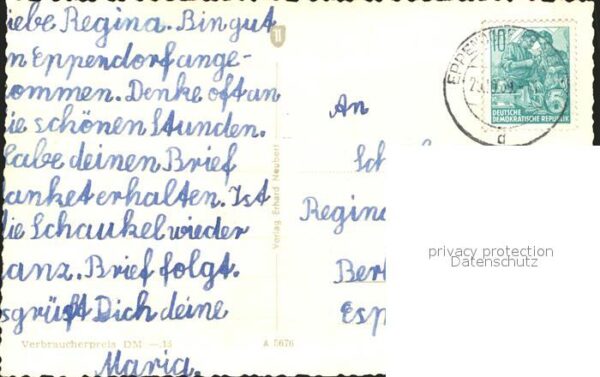 iebe Regina. Bin gut
n Eppendorf ange-
ommen. Denke oft an
ie schönen Stunden.
abe deinen Brief
anket erhalten. Ist
ie Schaukel wieder
anz. Brief folgt.
sgrüßt Dich deine
Maria.
Verbraucherpreis DM —.15
A 5676
Verlag Erhard Neubert
An
Sch
Regina
Ber
Esp
EPPEND
10
5
DEUTSCHE
DEMOKRATISCHE REPUBLIK
d
privacy protection
Datenschutz